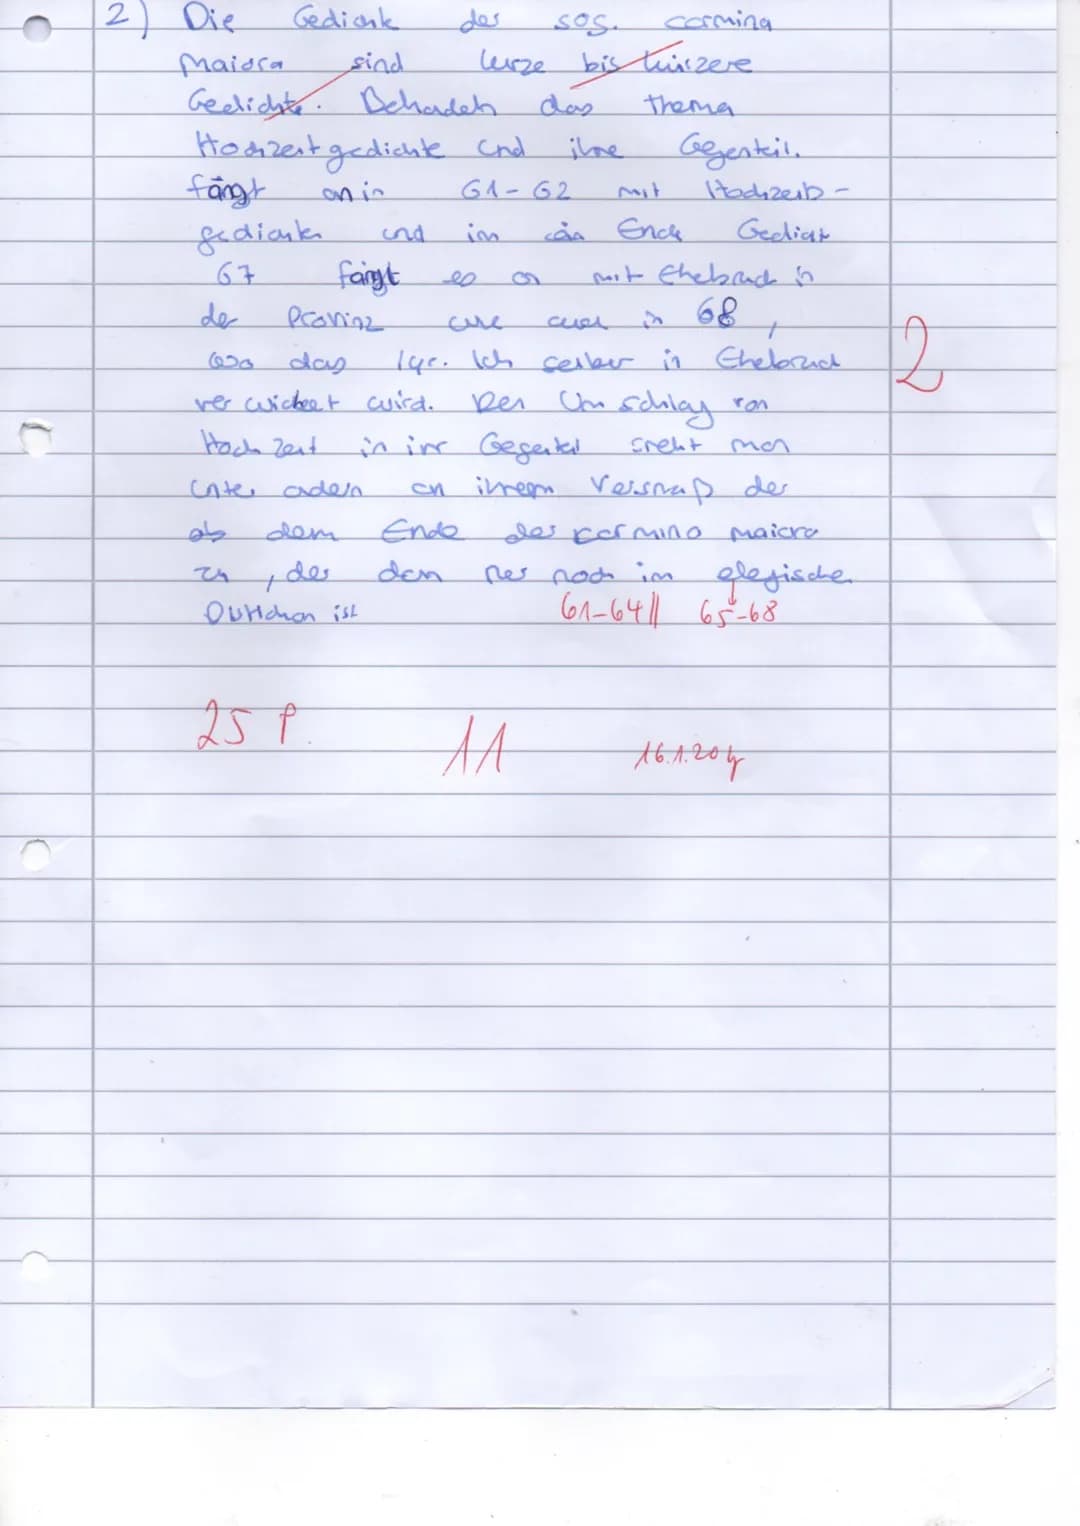 2) Die Gedichte der sog. carmina
maiora sind kurze bis kürzere
Gedichte. Behadeln das Thema
Hochzeitgedichte und ihre Gegenteil.
fängt an in 61-62 mit Hochzeits-
gedichten und im Ende Gedicht
67 fängt es an mit Ehebruch in
der Provinz wie auch in 68,
wo das lyr. Ich selber in Ehebruch
verwickelt wird. Den Umschlag von
Hochzeit in ihr Gegenteil sieht man
unter adern an ihrem Versmaß der
ab dem Ende der carmina maiora
zu, der dann nur noch im elegischen
Distichon ist
2
61-64 || 65-68
25 P. 11 16.1.20